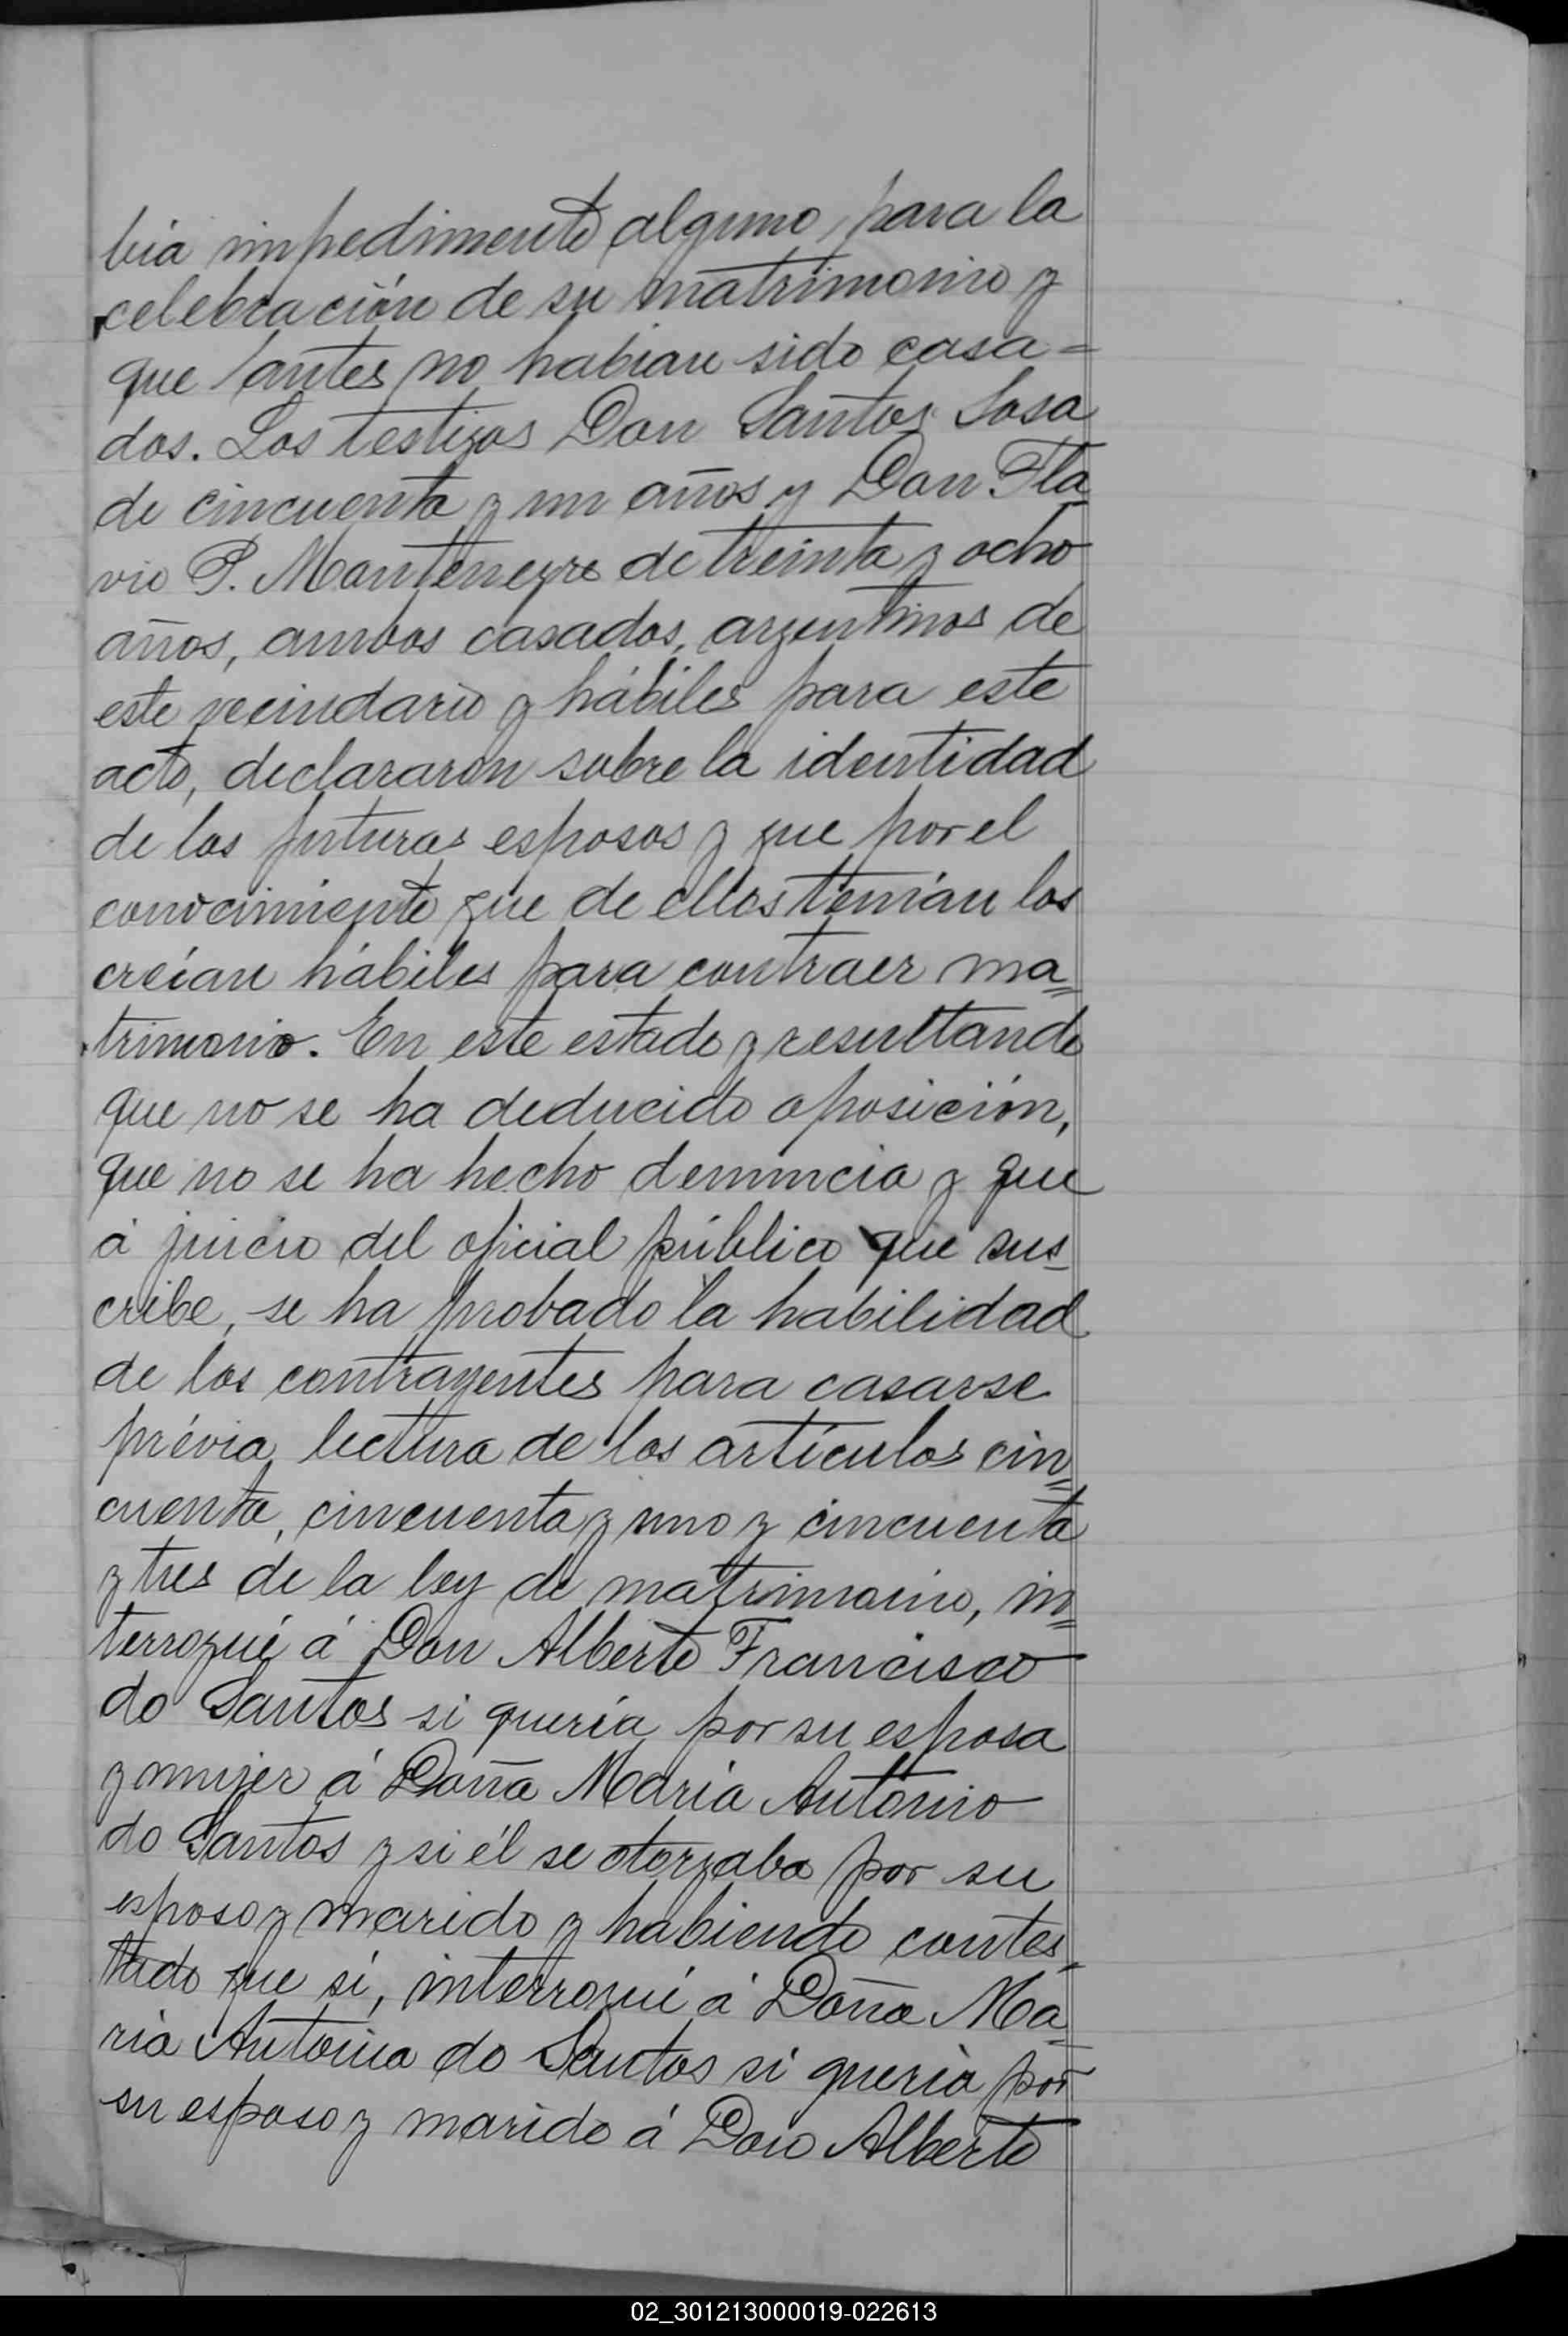 bia impedimento alguno, para la
celebración de su matrimonio y
que antes no habian sido casa=
dos. Los testigos Don Santos Sosa
de cincuenta y un años y Don Fla
vio P. Montenegro de treinta y ocho
años, ambos casados, argentinos de
este vecindario y hábiles para este
acto, declararon sobre la identidad
de los futuros esposos y que por el
conocimiento que de ellos tenían los
creían hábiles para contraer ma=
trimonio. En este estado y resultando
que no se ha deducido oposición,
que no se ha hecho denuncia y que
á juicio del oficial público que sus_
cribe, se ha probado la habilidad
de los contrayentes para casarse
prévia lectura de los artículos cin=
cuenta, cincuenta y uno y cincuenta
y tres de la ley de matrimonio, in=
terrogué á Don Alberto Francisco
do Santos si quería por su esposa
y mujer á Doña Maria Antonio
do Santos y si él se otorgaba por su
esposo y marido y habiendo contes_
tado que sí, interrogué á Doña Ma=
ria Antonia do Santos si quería por
su esposo y marido á Don Alberto
02_301213000019-022613